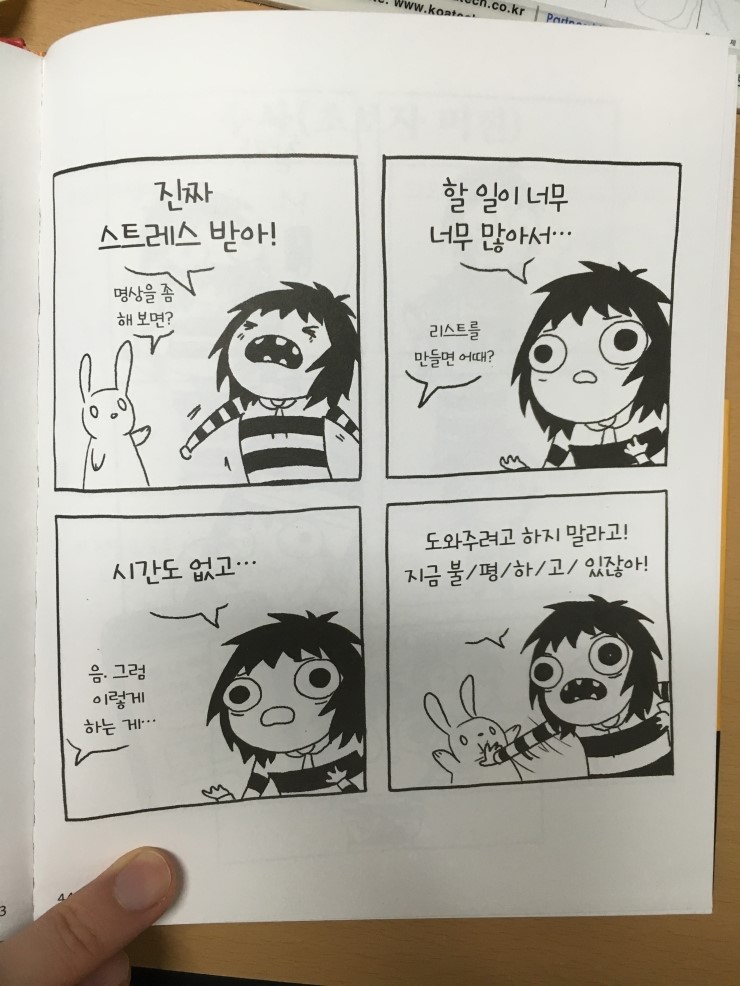 www.koatech.co.kr
진짜
스트레스 받아!
명상을 좀
해 보면?
할 일이 너무
너무 많아서…
리스트를
만들면 어때?
시간도 없고…
음. 그럼
이렇게
하는 게…
도와주려고 하지 말라고!
지금 불/평/하/고/ 있잖아!
3